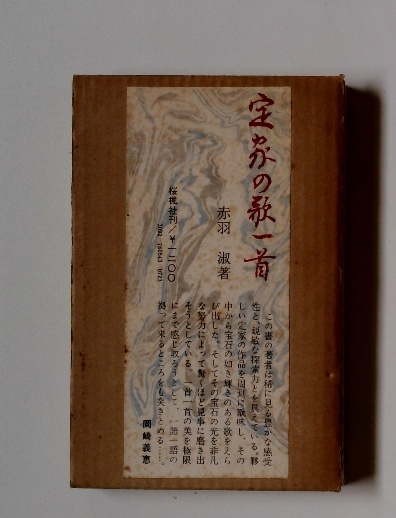 定家の歌一首
赤羽 淑著
桜楓社刊／￥一二〇〇
この書の著者は稀に見る豊かな感受
性と、鋭敏な探索力とを具えている。夥
しい定家の作品を周到に吟味し、その
中から宝石の如き輝きのある歌をえら
び出した。そしてその宝石の光を非凡
な努力によって驚くほど見事に磨き出
そうとしている。一首一首の美を極限
にまで感じ取ろうとして、一語一語の
拠って来るところをも突きとめる……。
岡崎義恵